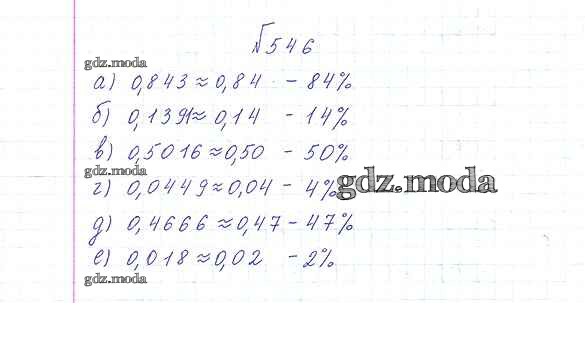 №546
gdz.moda
а) 0,843≈0,84 - 84%
б) 0,139≈0,14 - 14%
в) 0,5016≈0,50 - 50%
gdz.moda
г) 0,0449≈0,04 - 4%
gdz.moda
д) 0,4666≈0,47 - 47%
е) 0,018≈0,02 - 2%
gdz.moda